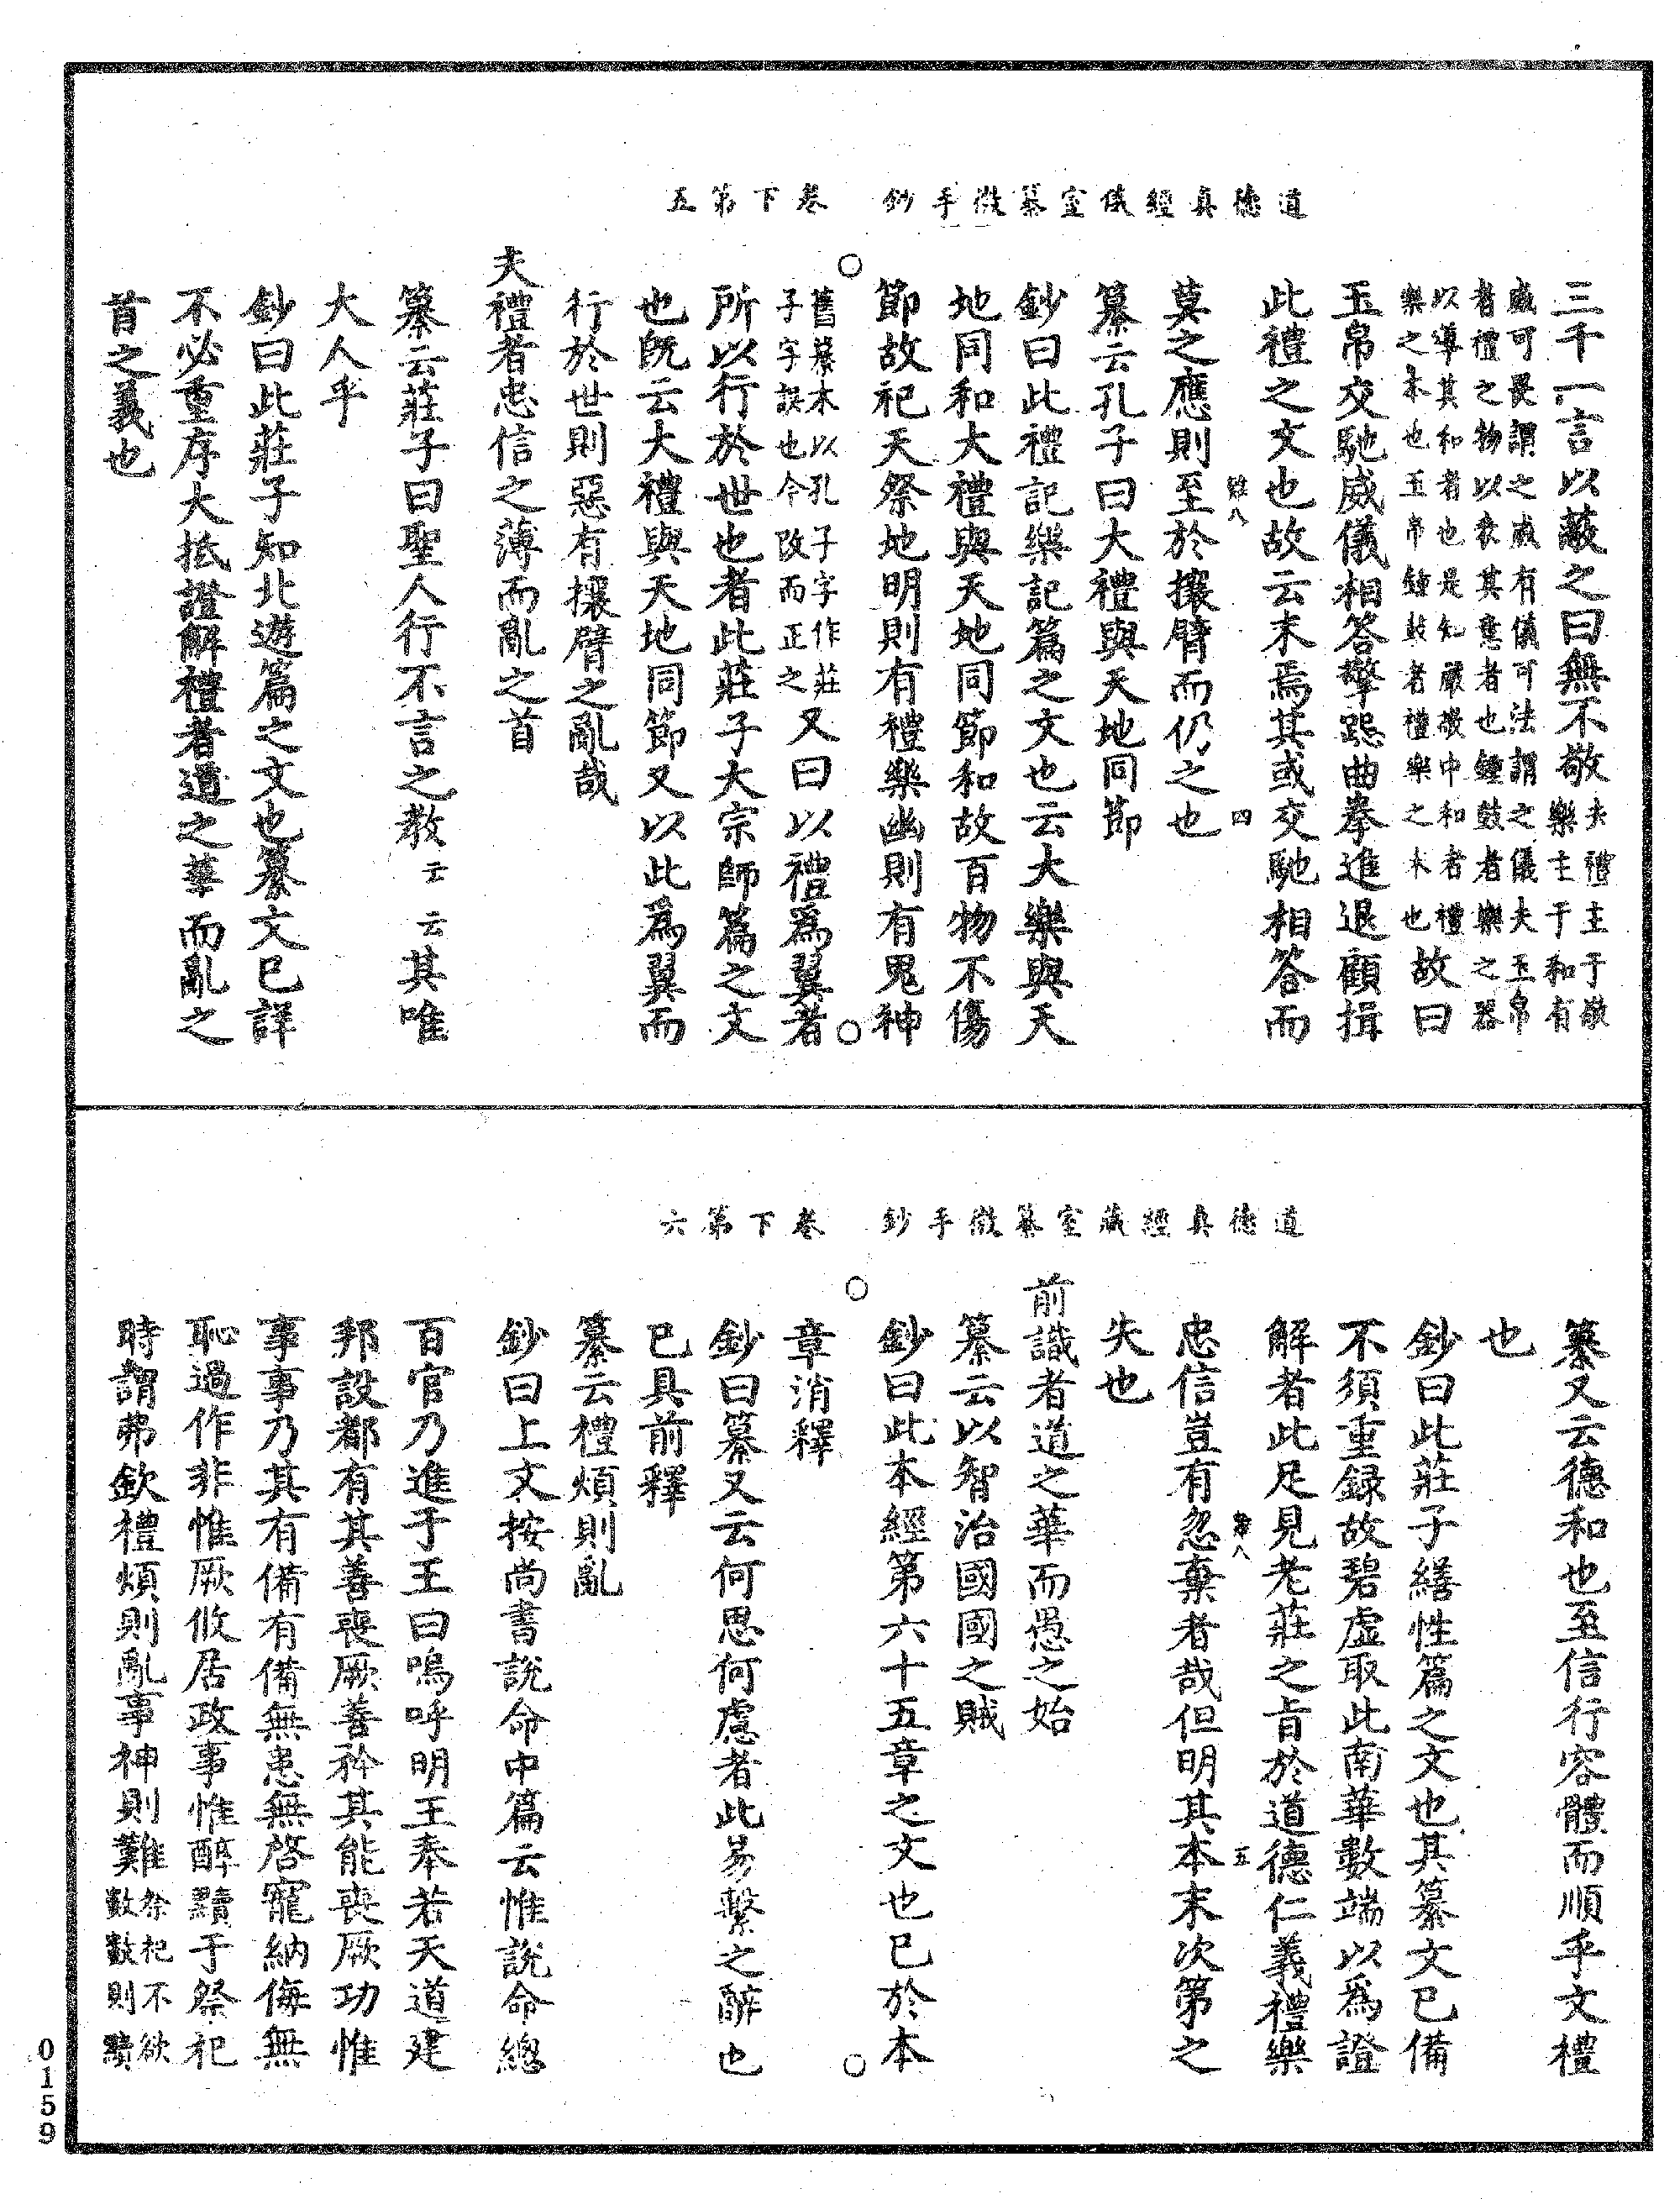 道德真經儀室纂微手鈔　卷下第五
三千一言以蔽之曰無不敬夫禮主于敬樂主于和有
威可畏謂之威有儀可法謂之儀夫玉帛
者禮之物以表其意者也鍾鼓者樂之器
以導其和者也是知嚴敬中和者禮
樂之本也玉帛鍾鼓者禮樂之末也故曰
玉帛交馳威儀相答擎跽曲拳進退顧揖
此禮之文也故云末焉其或交馳相答而
難八　四
莫之應則至於攘臂而仍之也
纂云孔子曰大禮與天地同節
鈔曰此禮記樂記篇之文也云大樂與天
地同和大禮與天地同節和故百物不傷
節故祀天祭地明則有禮樂幽則有鬼神
舊纂本以孔子字作莊
子字誤也今改而正之又曰以禮為翼者
所以行於世也者此莊子大宗師篇之文
也既云大禮與天地同節又以此為翼而
行於世則惡有攘臂之亂哉
夫禮者忠信之薄而亂之首
纂云莊子曰聖人行不言之教云云其唯
大人乎
鈔曰此莊子知北遊篇之文也纂文已詳
不必重序大抵證解禮者道之華而亂之
首之義也
道德真經藏室纂微手鈔　卷下第六
纂又云德和也至信行容體而順乎文禮
也
鈔曰此莊子繕性篇之文也其纂文已備
不須重録故碧虛取此南華數端以為證
解者此足見老莊之旨於道德仁義禮樂
難八　五
忠信豈有忽棄者哉但明其本末次第之
失也
前識者道之華而愚之始
纂云以智治國國之賊
鈔曰此本經第六十五章之文也已於本
章消釋
鈔曰纂又云何思何慮者此易繫之辭也
已具前釋
纂云禮煩則亂
鈔曰上文按尚書說命中篇云惟說命總
百官乃進于王曰嗚呼明王奉若天道建
邦設都有其善喪厥善矜其能喪厥功惟
事事乃其有備有備無患無啓寵納侮無
恥過作非惟厥攸居政事惟醇黷于祭祀
時謂弗欽禮煩則亂事神則難祭祀不欲
數數則黷
0159